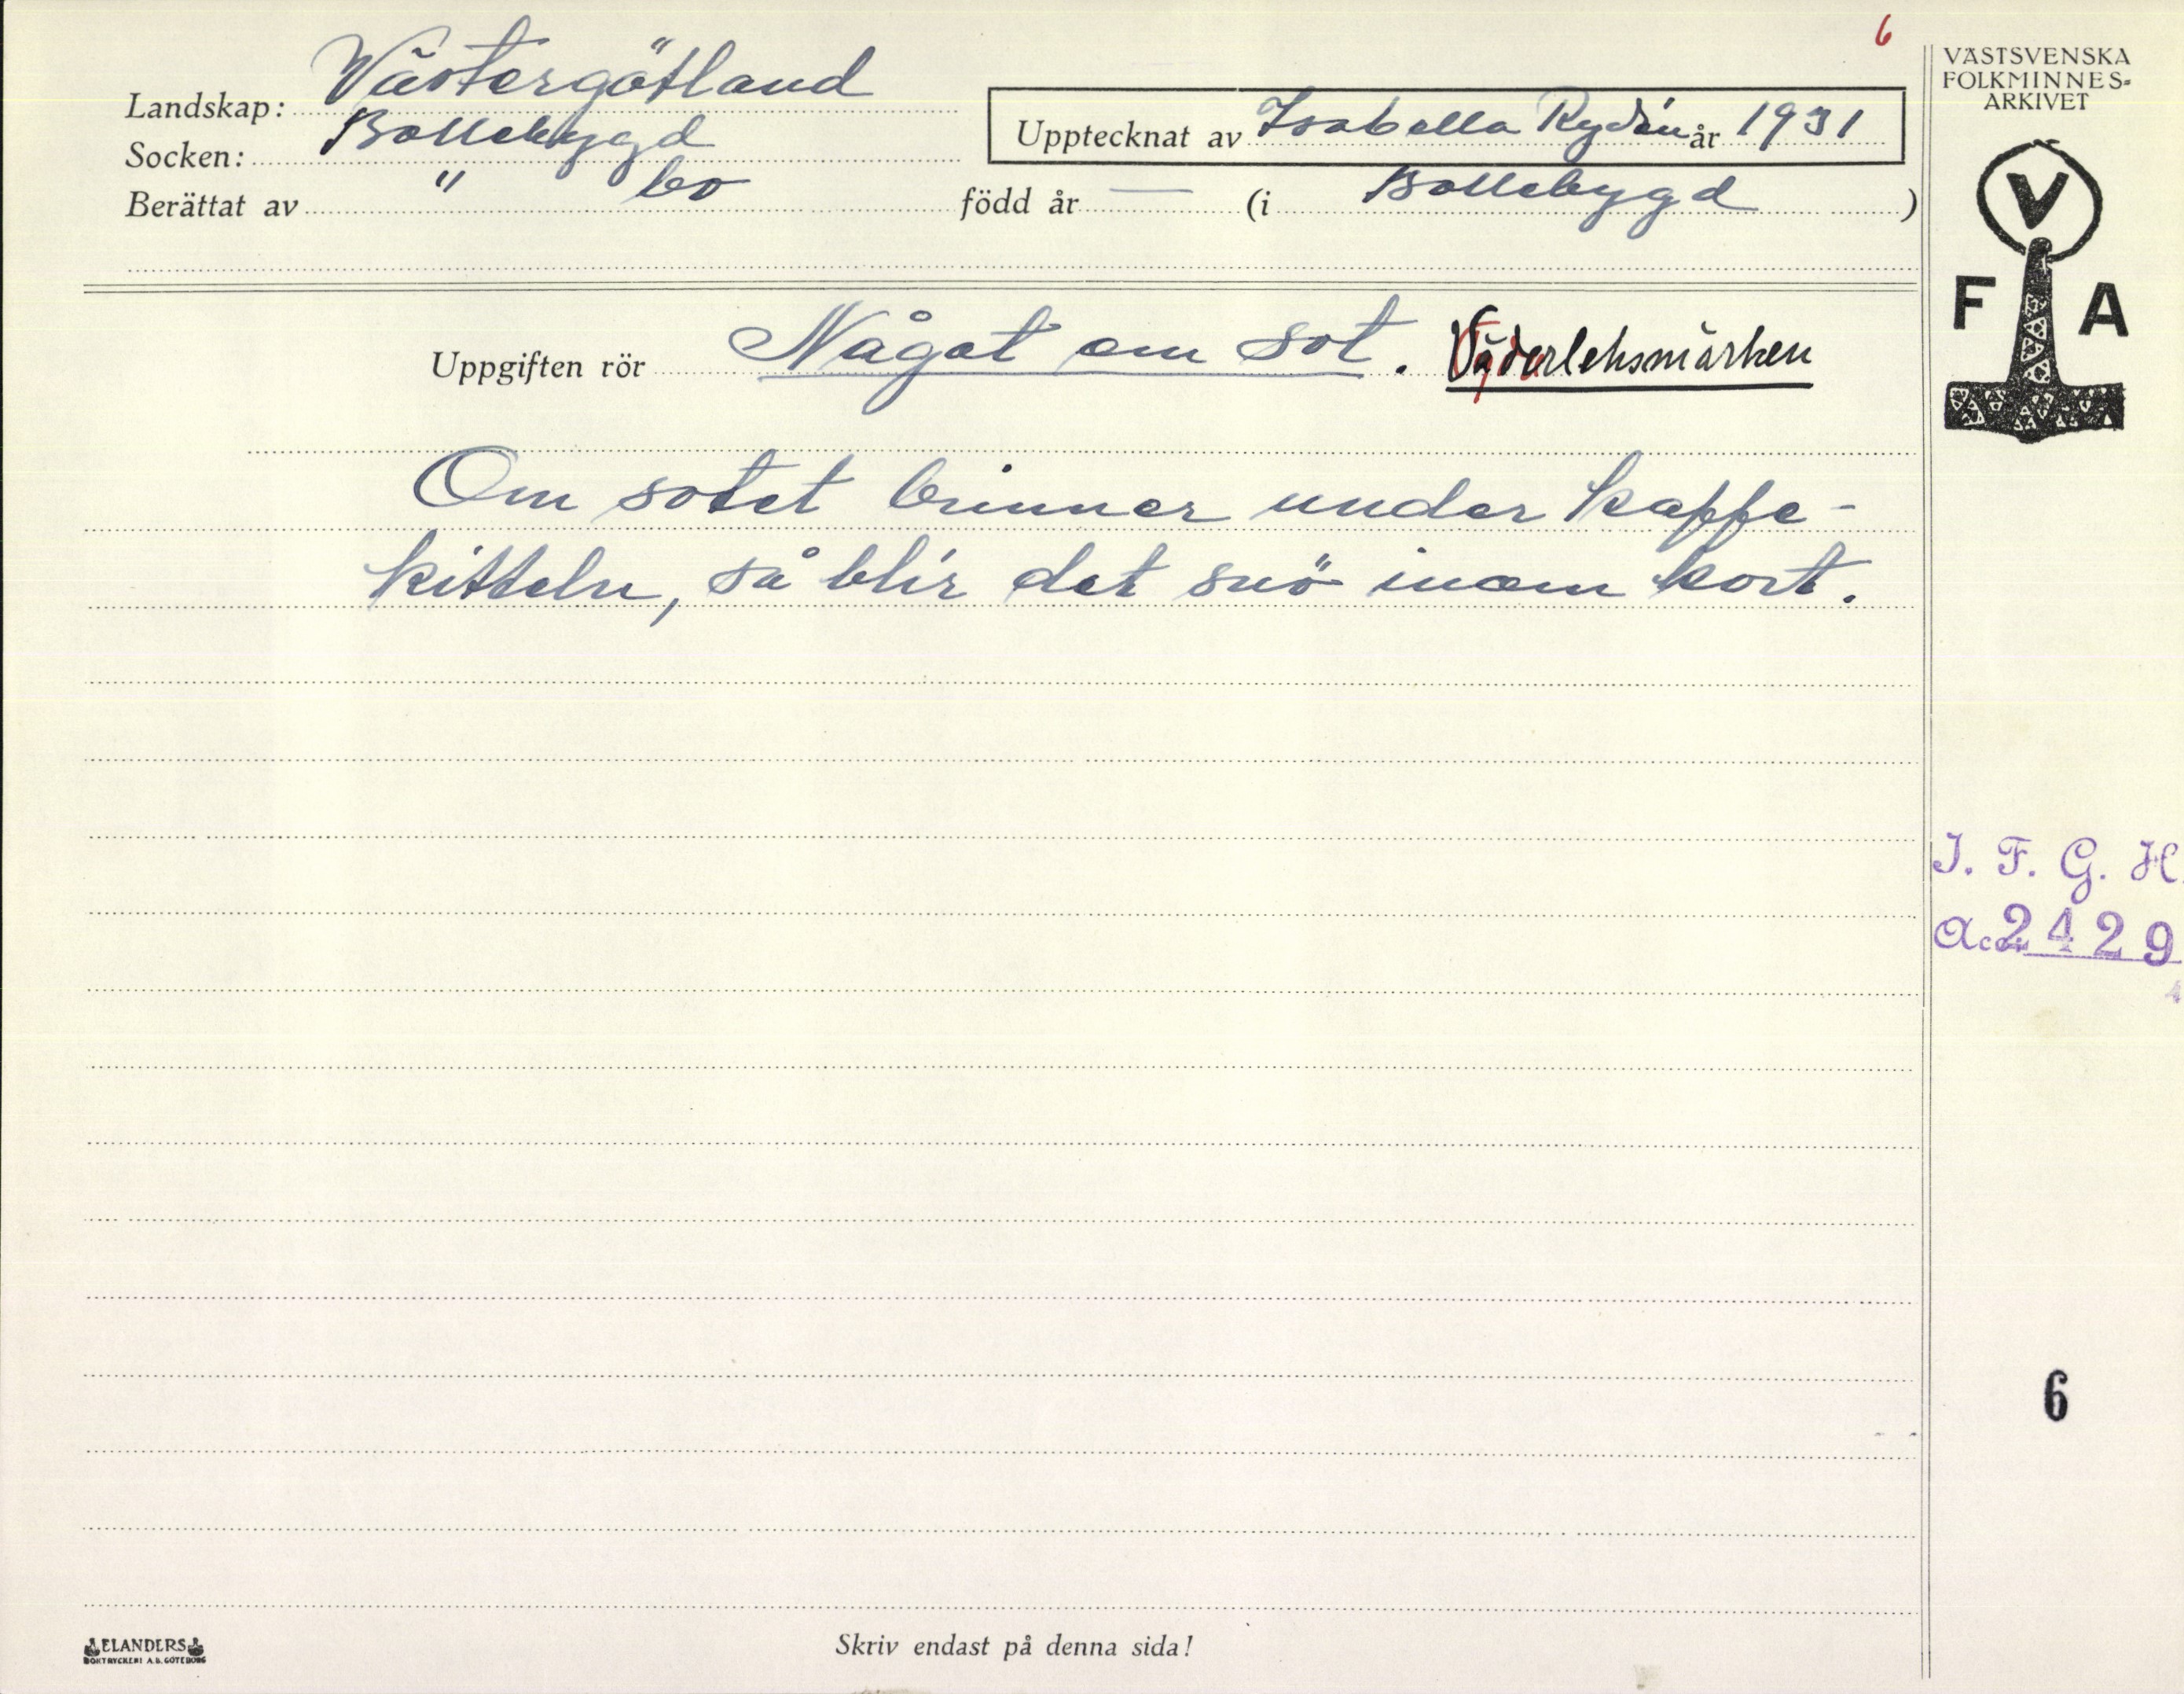 6
VÄSTSVENSKA
FOLKMINNES-
ARKIVET
Landskap: Västergötland
Upptecknat av Isabella Rydén år 1931
Socken: Bollebygd
Berättat av " bo född år — (i Bollebygd)
V
F A
Uppgiften rör Något om sot. Väderleksmärken
Om sotet brinner under kaffe-
kitteln, så blir det snö inom kort.
I. F. G. H.
Acc. 2429
6
ELANDERS
BOKTRYCKERI A.B. GÖTEBORG
Skriv endast på denna sida!